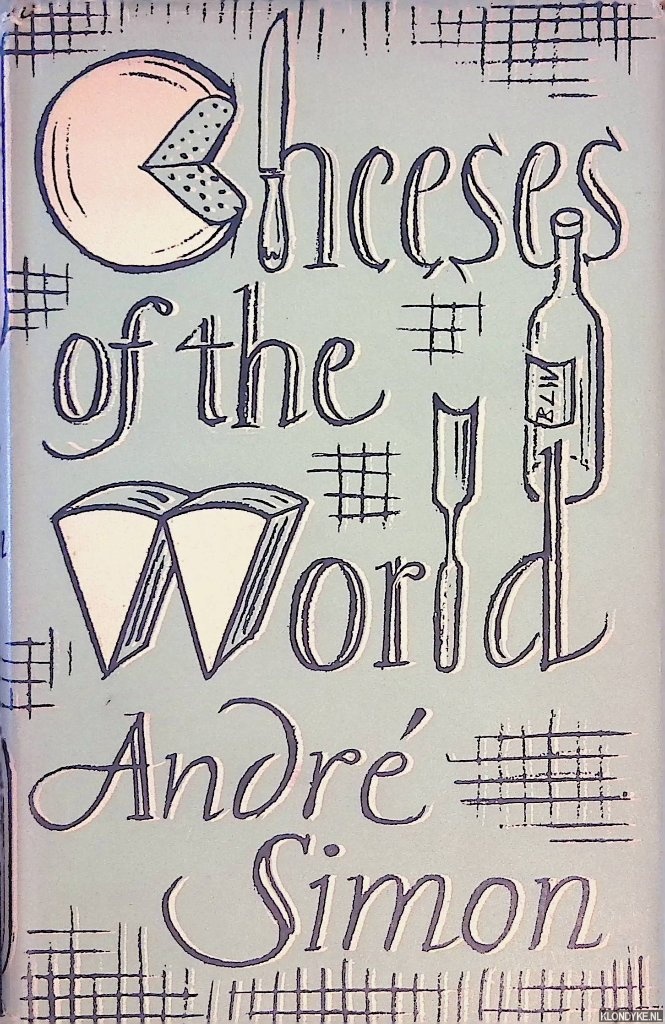 Cheeses
of the
World
André
Simon
KLONDYKE.NL